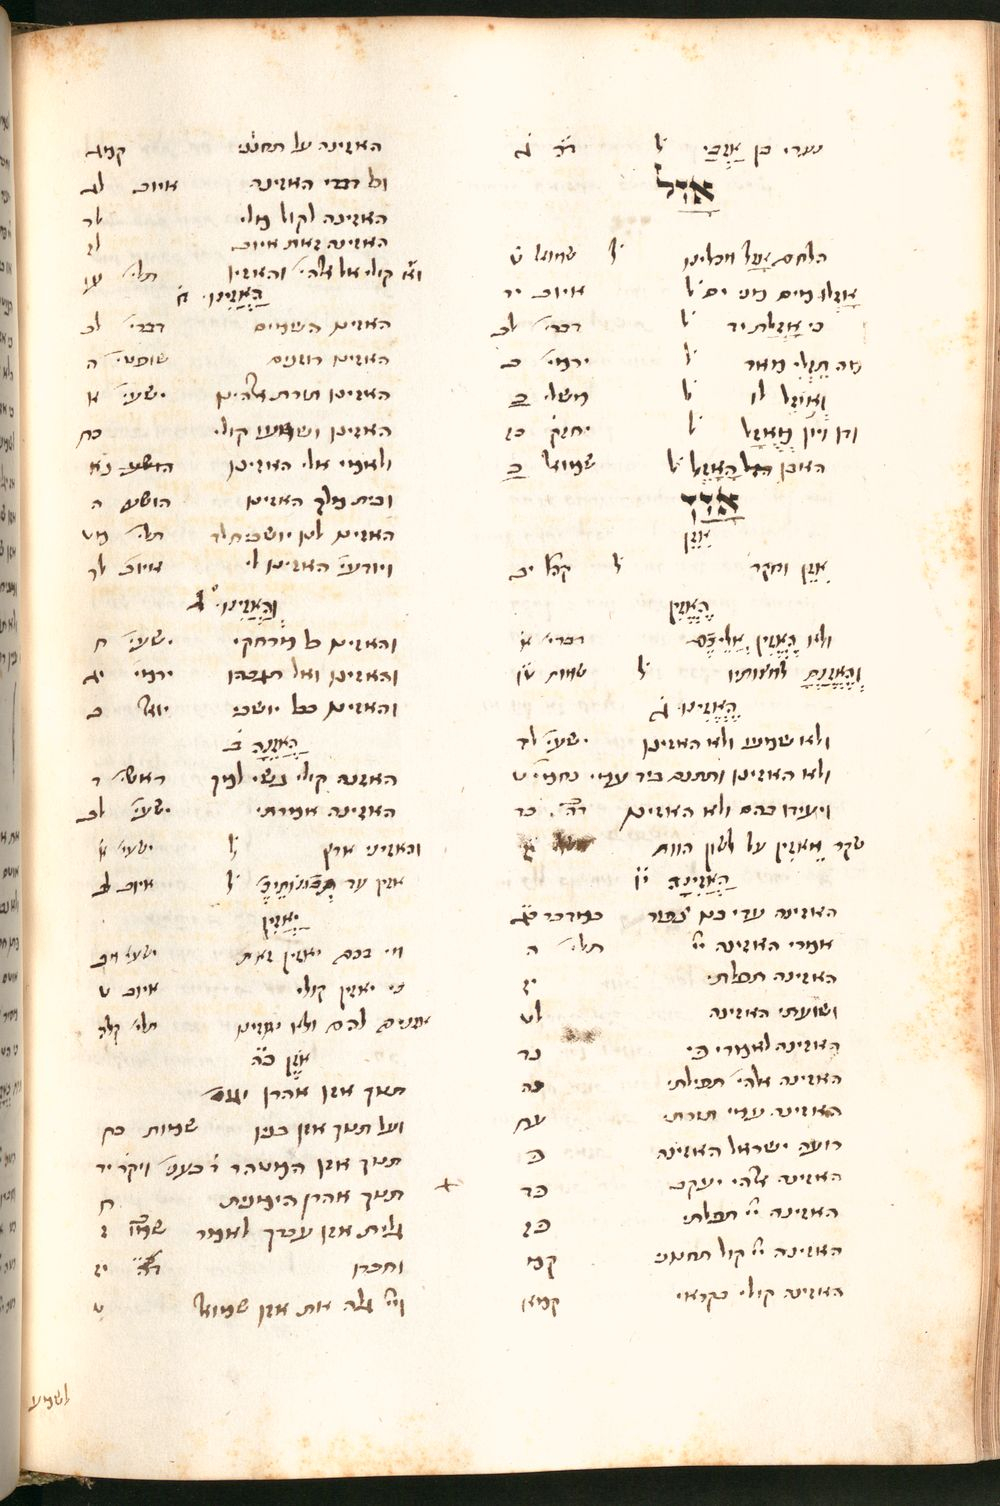 נערי בן אזבי ל׳ דה׳ ג
אזל
הלחם אזל מכלינו ל׳ שמואל ט
אזלו מים מני ים ל׳ איוב יד
כי אזלת יד ל׳ דברי׳ לב
מה תזלי מאד ל׳ ירמי׳ ב
ואוזל לו ל׳ משלי כ
ודן ויון מאוזל ל׳ יחזק׳ כז
האבן האזל ל׳ שמואל כ
אזן
אזן
אזן וחקר ל׳ קהל׳ יב
האזין
ולא האזין אליכם דברי׳ א
והאזנת למצותיו ל׳ שמות טו
האזינו ג
ולא שמעו ולא האזינו ישעי׳ לד
ולא האזינו ותתנם ביד עמי נחמי׳ ט
ויעידו בהם ולא האזינו דה׳ כד
שקר מאזין על לשון הוות
האזינה י׳
האזינה עדי בנו צפור במדבר כג
אמרי האזינה י״י תלי׳ ה
האזינה תפלתי יז
ושועתי האזינה לט
האזינה לאמרי פי נד
האזינה אלהי׳ תפילתי נה
האזינה עמי תורתי עח
רועה ישראל האזינה פ
האזינה אלהי יעקב פד
האזינה י״י תפלתי פו
האזינה י״י קול תחנוני קמ
האזינה קולי בקראי קמא
האזינה על תחנוני קמג
וכל דברי האזינה איוב לג
האזינה לקול מלי לד
האזינה זאת איוב לז
קולי אל אלהי׳ והאזין תלי׳ עז
האזינו ח
האזינו השמים דברי׳ לב
האזינו רוזנים שופטי׳ ה
האזינו תורת אלהינו ישעי׳ א
האזינו ושמעו קולי כח
ולאמי אלי האזינו נא
ובית מלך האזינו הושע ה
האזינו כל יושבי חלד תלי׳ מט
ויודעי׳ האזינו לי איוב לד
והאזינו ג
והאזינו כל מרחקי ישעי׳ ח
והאזינו ואל תגבהו ירמי׳ יג
והאזינו כל יושבי יואל ב
האזנה ב
האזנה קולי נשי למך ראשי׳ ד
האזינה אמרתי ישעי׳ לב
והאזיני ארץ ל׳ ישעי׳ א
אזין עד תבונותיכם ל׳ איוב לב
יאזין
מי בכם יאזין זאת ישעי׳ מב
כי יאזין קולי איוב ט
אזנים להם ולא יאזינו תלי׳ קלה
אזן כ״ה
תנוך אזן אהרן
ועל תנוך אזן בניו שמות כח
תנוך אזן המטהר ויקר׳ יד
תנוך אהרן הימנית ח
גלית אזן עבדך לאמר ש״מו ז
וחברו דה׳ יז
וי״י גלה את אזן שמואל ט
לשמע